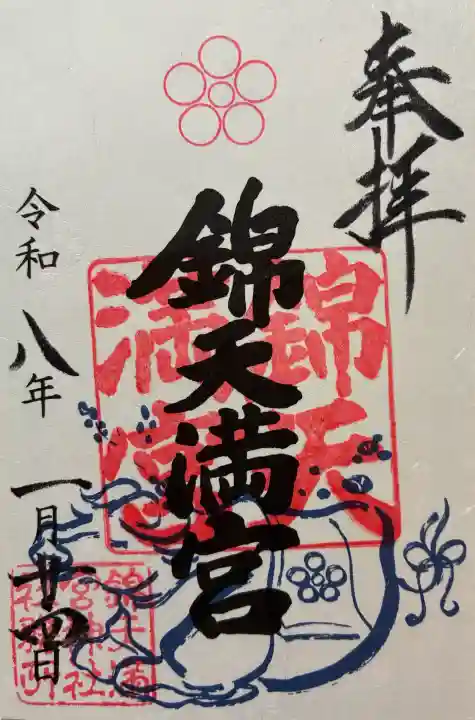 奉拝
錦天満宮
錦天
満宮
令和八年一月廿四日
錦天満
宮神社
社務所